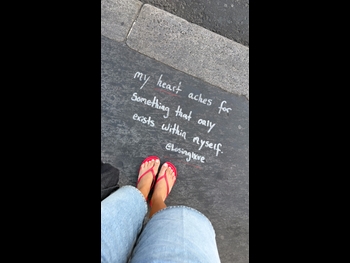 my heart aches for
something that only
exists within myself.
@losinghxpe